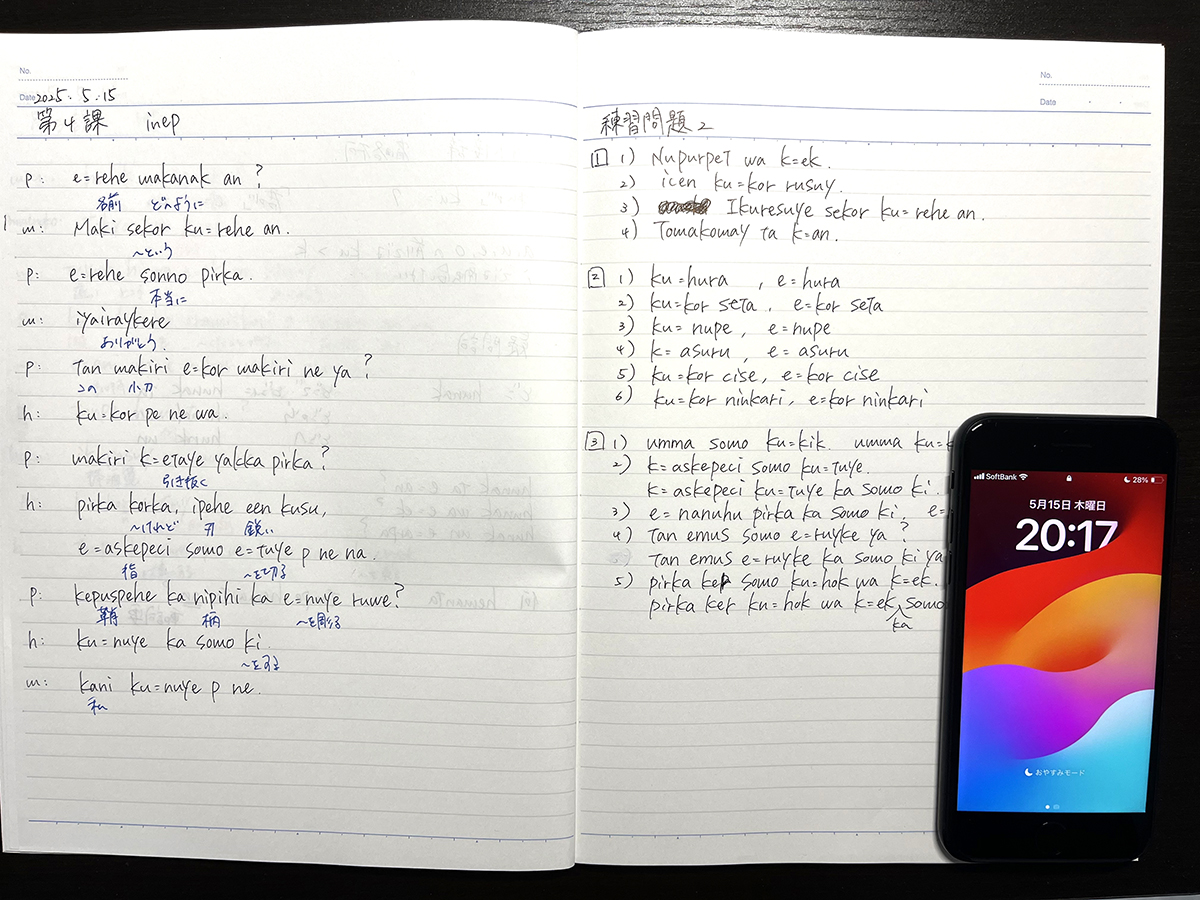 No.
Date 2025. 5. 15
第4課 inep
p: e=rehe makanak an?
名前 どのように
m: Maki sekor ku=rehe an.
〜という
p: e=rehe sonno pirka.
本当に
m: iyairaykere
ありがとう
p: Tan makiri e=kor makiri ne ya?
この 小刀
h: ku=kor pe ne wa.
p: makiri k=etaye yakka pirka?
引き抜く
h: pirka korka, ipehe een kusu,
〜けれど 刃 鋭い
e=askepeci somo e=tuye p ne na.
指 〜を切る
p: kepuspehe ka nipihi ka e=nuye ruwe?
鞘 柄 〜を彫る
h: ku=nuye ka somo ki.
〜をする
m: kani ku=nuye p ne.
私
No.
Date
練習問題2
1 1) Nupurpet wa k=ek.
2) icen ku=kor rusuy.
3) Ikuresuye sekor ku=rehe an.
4) Tomakomay ta k=an.
2 1) ku=hura , e=hura
2) ku=kor seta, e=kor seta
3) ku=nupe, e=nupe
4) k=asuru, e=asuru
5) ku=kor cise, e=kor cise
6) ku=kor ninkari, e=kor ninkari
3 1) umma somo ku=kik. umma ku=
2) k=askepeci somo ku=tuye.
k=askepeci ku=tuye ka somo ki.
3) e=nanuhu pirka ka somo ki, e=
4) Tan emus somo e=ruyke ya?
Tan emus e=ruyke ka somo ki ya
5) pirka ker somo ku=hok wa k=ek.
pirka ker ku=hok wa k=ek ka somo
SoftBank 28%
5月15日 木曜日
20:17
おやすみモード